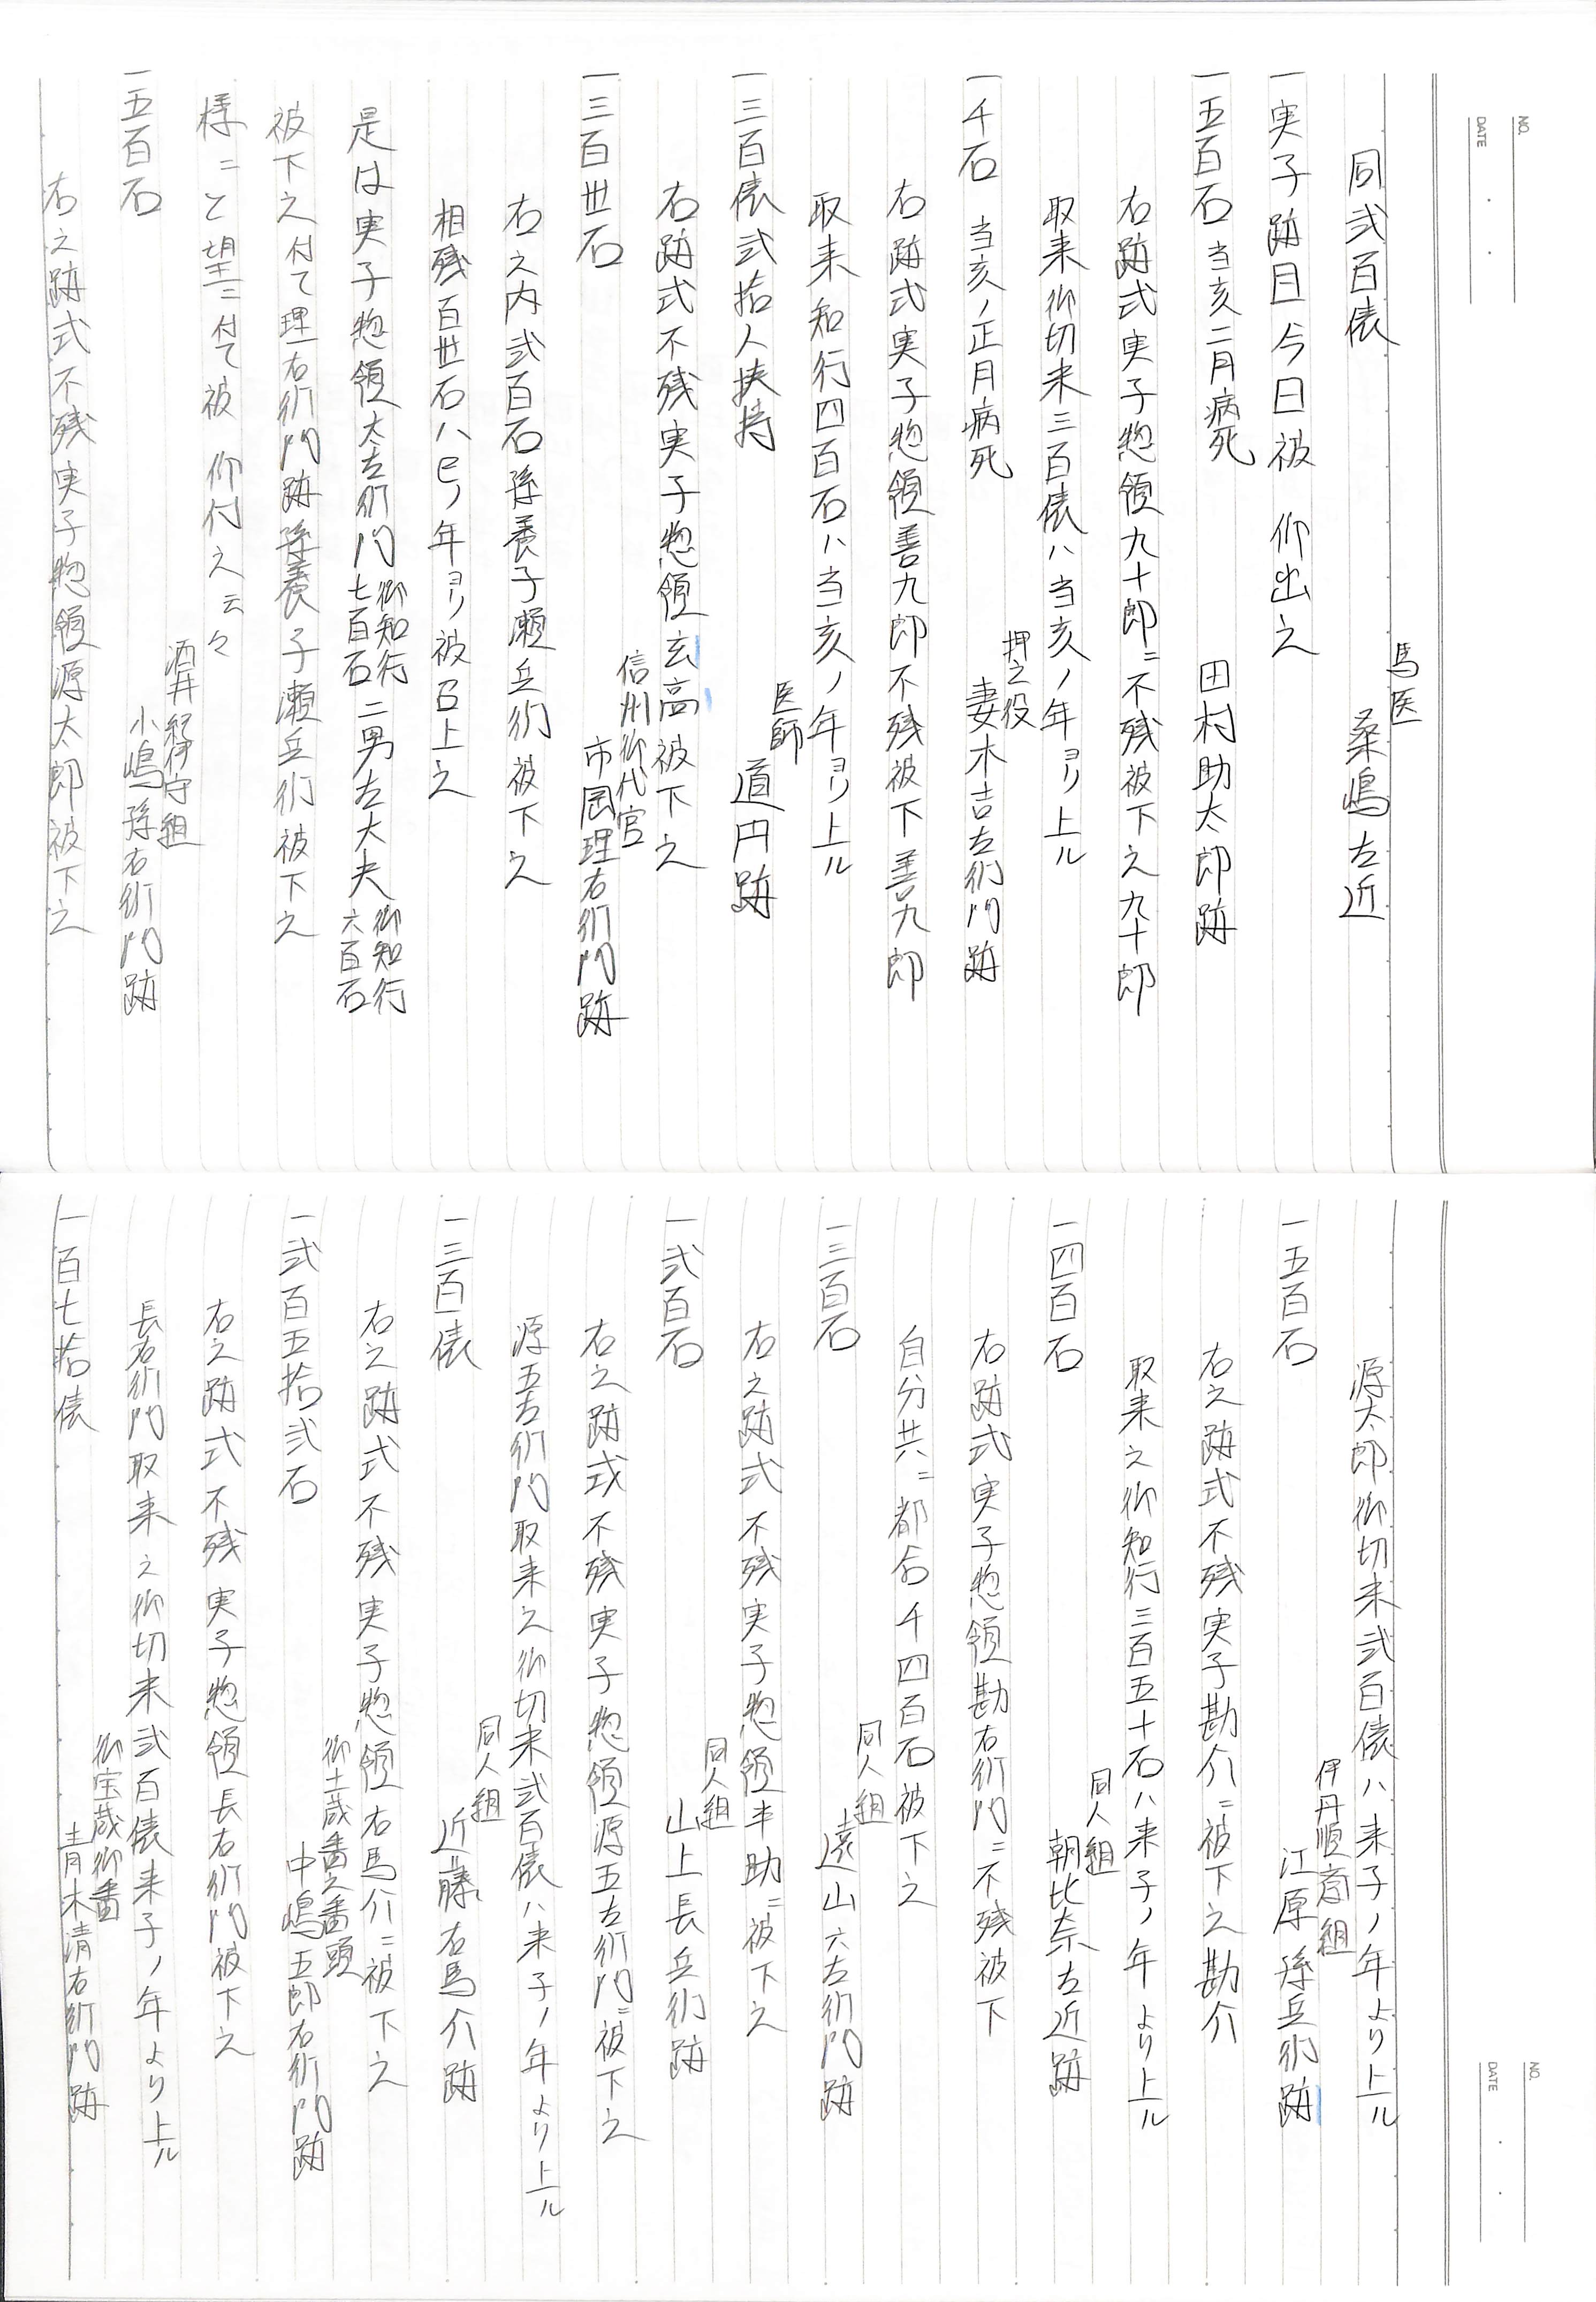 NO.
DATE
馬医
同弐百俵 桑嶋左近
一実子跡目今日被 仰出之
一五百石 当亥二月病死 田村助太郎跡
右跡式実子惣領九十郎ニ不残被下之九十郎
取来御切米三百俵ハ当亥ノ年ヨリ上ル
押之役
一千石 当亥ノ正月病死 妻木吉左衛門跡
右跡式実子惣領善九郎不残被下善九郎
取来知行四百石ハ当亥ノ年ヨリ上ル
医師
一三百俵弐拾人扶持 道円跡
右跡式不残実子惣領玄高被下之
信州御代官
一三百丗石 市岡理右衛門跡
右之内弐百石孫養子瀬兵衛被下之
相残百丗石ハ巳ノ年ヨリ被召上之
是は実子惣領太左衛門御知行七百石二男左大夫御知行六百石
被下之付て理右衛門跡孫養子瀬兵衛被下之
様ニと望ニ付て被 仰付之云々
酒井紀伊守組
一五百石 小嶋孫右衛門跡
右之跡式不残実子惣領源太郎被下之
NO.
DATE
源太郎御切米弐百俵ハ来子ノ年より上ル
伊丹順斎組
一五百石 江原孫兵衛跡
右之跡式不残実子勘介ニ被下之勘介
取来之御知行三百五十石ハ来子ノ年より上ル
同人組
一四百石 朝比奈左近跡
右跡式実子惣領勘右衛門ニ不残被下
自分共ニ都合千四百石被下之
同人組
一三百石 遠山六左衛門跡
右之跡式不残実子惣領半助ニ被下之
同人組
一弐百石 山上長兵衛跡
右之跡式不残実子惣領源五左衛門ニ被下之
源五左衛門取来之御切米弐百俵ハ来子ノ年より上ル
同人組
一三百俵 近藤右馬介跡
右之跡式不残実子惣領右馬介ニ被下之
御土蔵番之番頭
一弐百五拾弐石 中嶋五郎右衛門跡
右之跡式不残実子惣領長右衛門被下之
長右衛門取来之御切米弐百俵来子ノ年より上ル
御宝蔵御番
一百七拾俵 青木清右衛門跡